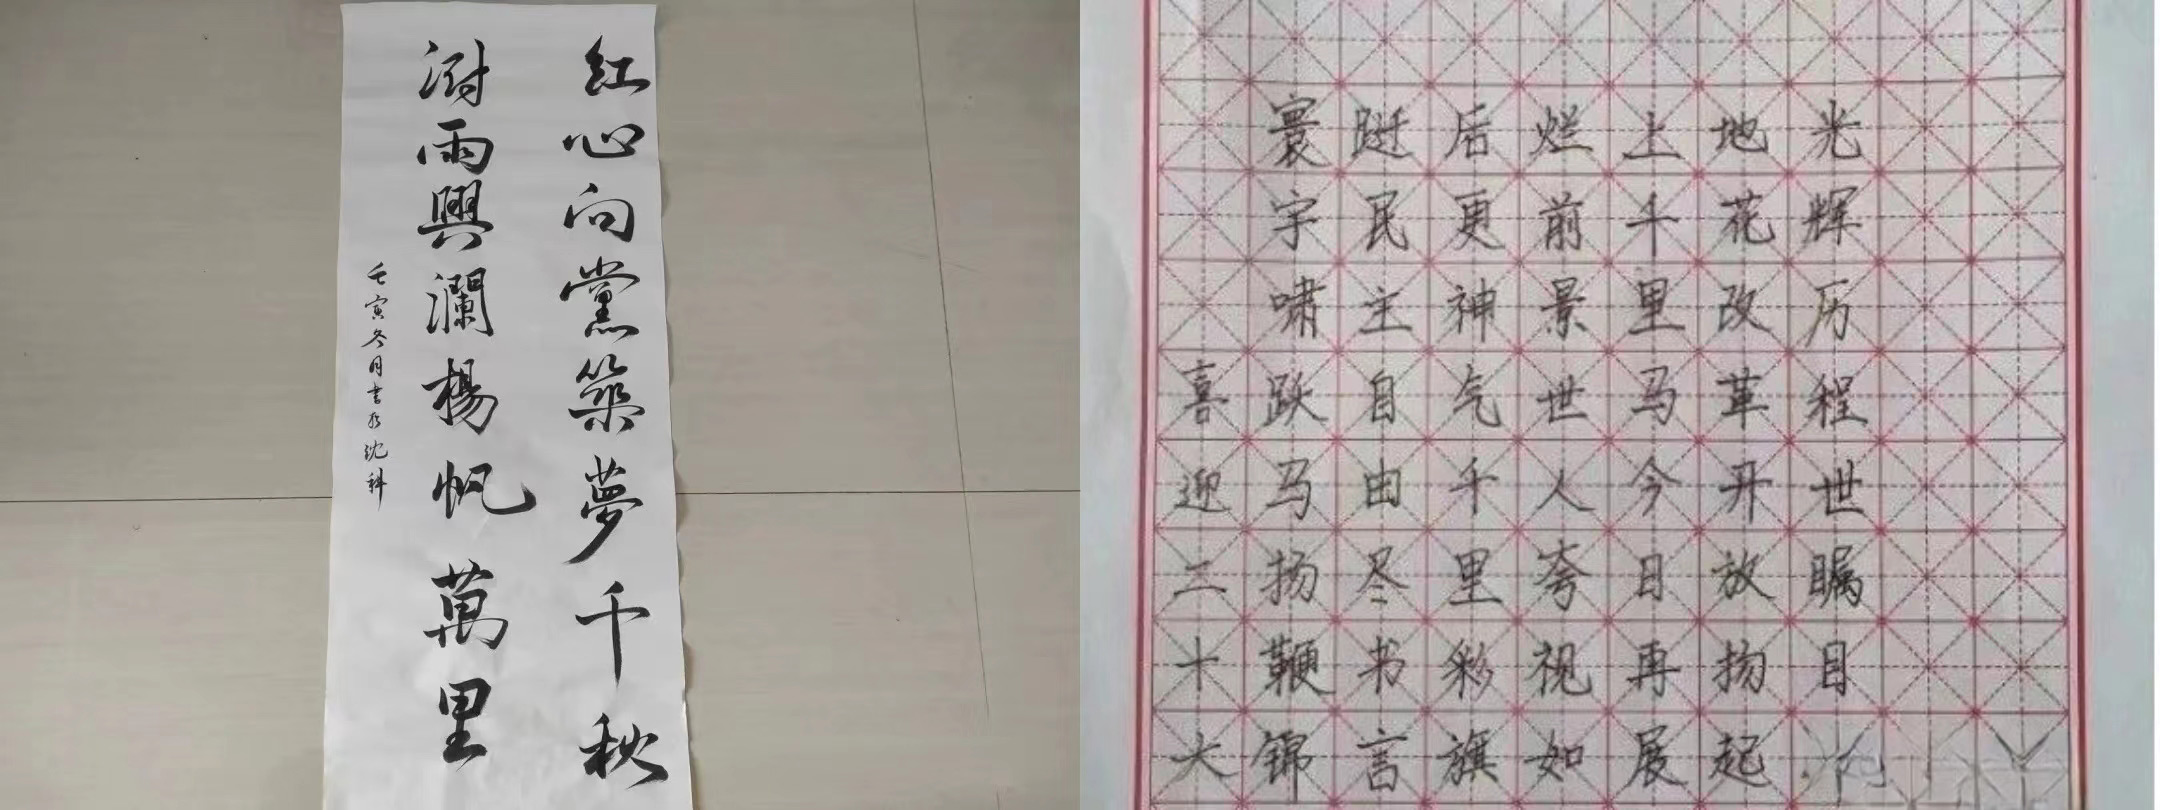 红心向黨築夢千秋
澍雨興瀾楊帆萬里
壬寅冬月書於沈科
喜迎二十大
寰宇啸跃马扬鞭锦
民主自由尽书言
后更神气千里彩旗
烂前景世人夸视如
上千里马今日再展
地花改革开放扬起
光辉历程世瞩目